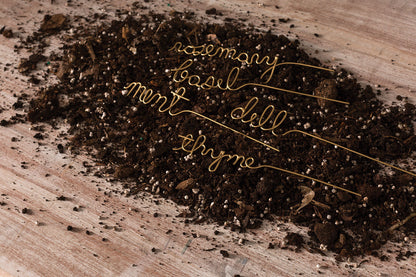 rosemary
basil
mint dill
thyme